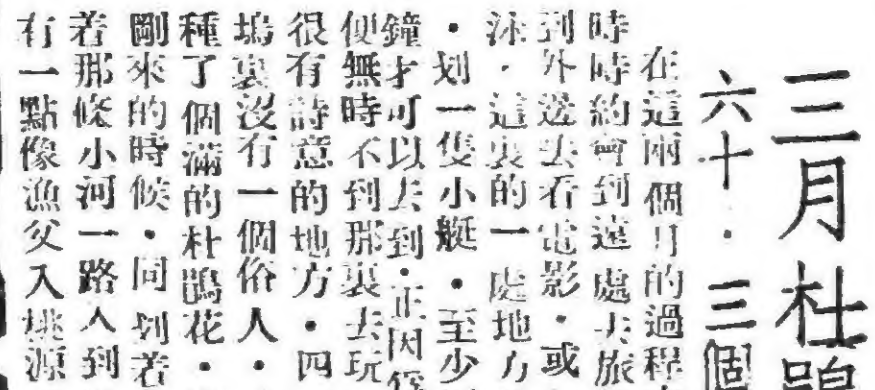 三月杜鵑
六十．三個
在這兩個月的過程
時時約會到遠處去旅
到外邊去看電影．或
泳．這裏的一處地方
．划一隻小艇．至少
鐘才可以去到．正因
便無時不到那裏去玩
很有詩意的地方．四
塢裏沒有一個俗人．
種了個滿的杜鵑花．
剛來的時候．同划着
着那條小河一路入到
有一點像漁父入桃源